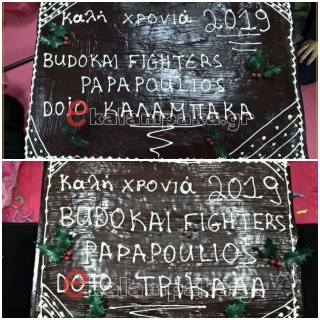 Καλή χρονιά 2019
BUDOKAI FIGHTERS
PAPAPOULIOS
DOJO ΚΑΛΑΜΠΑΚΑ
ekalampaka.gr
Καλή χρονιά 2019
BUDOKAI FIGHTERS
PAPAPOULIOS
DOJO ΤΡΙΚΑΛΑ
ekalampaka.gr